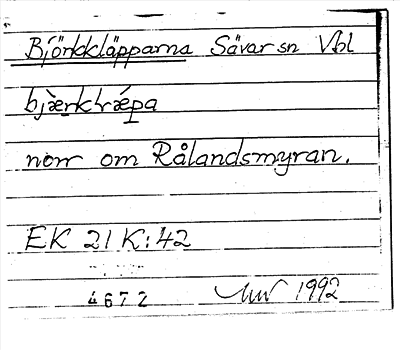 Björkkläpparna Sävar sn Vbl
bjærkkræpa
norr om Rålandsmyran.
EK 21 K:42
4672 1992